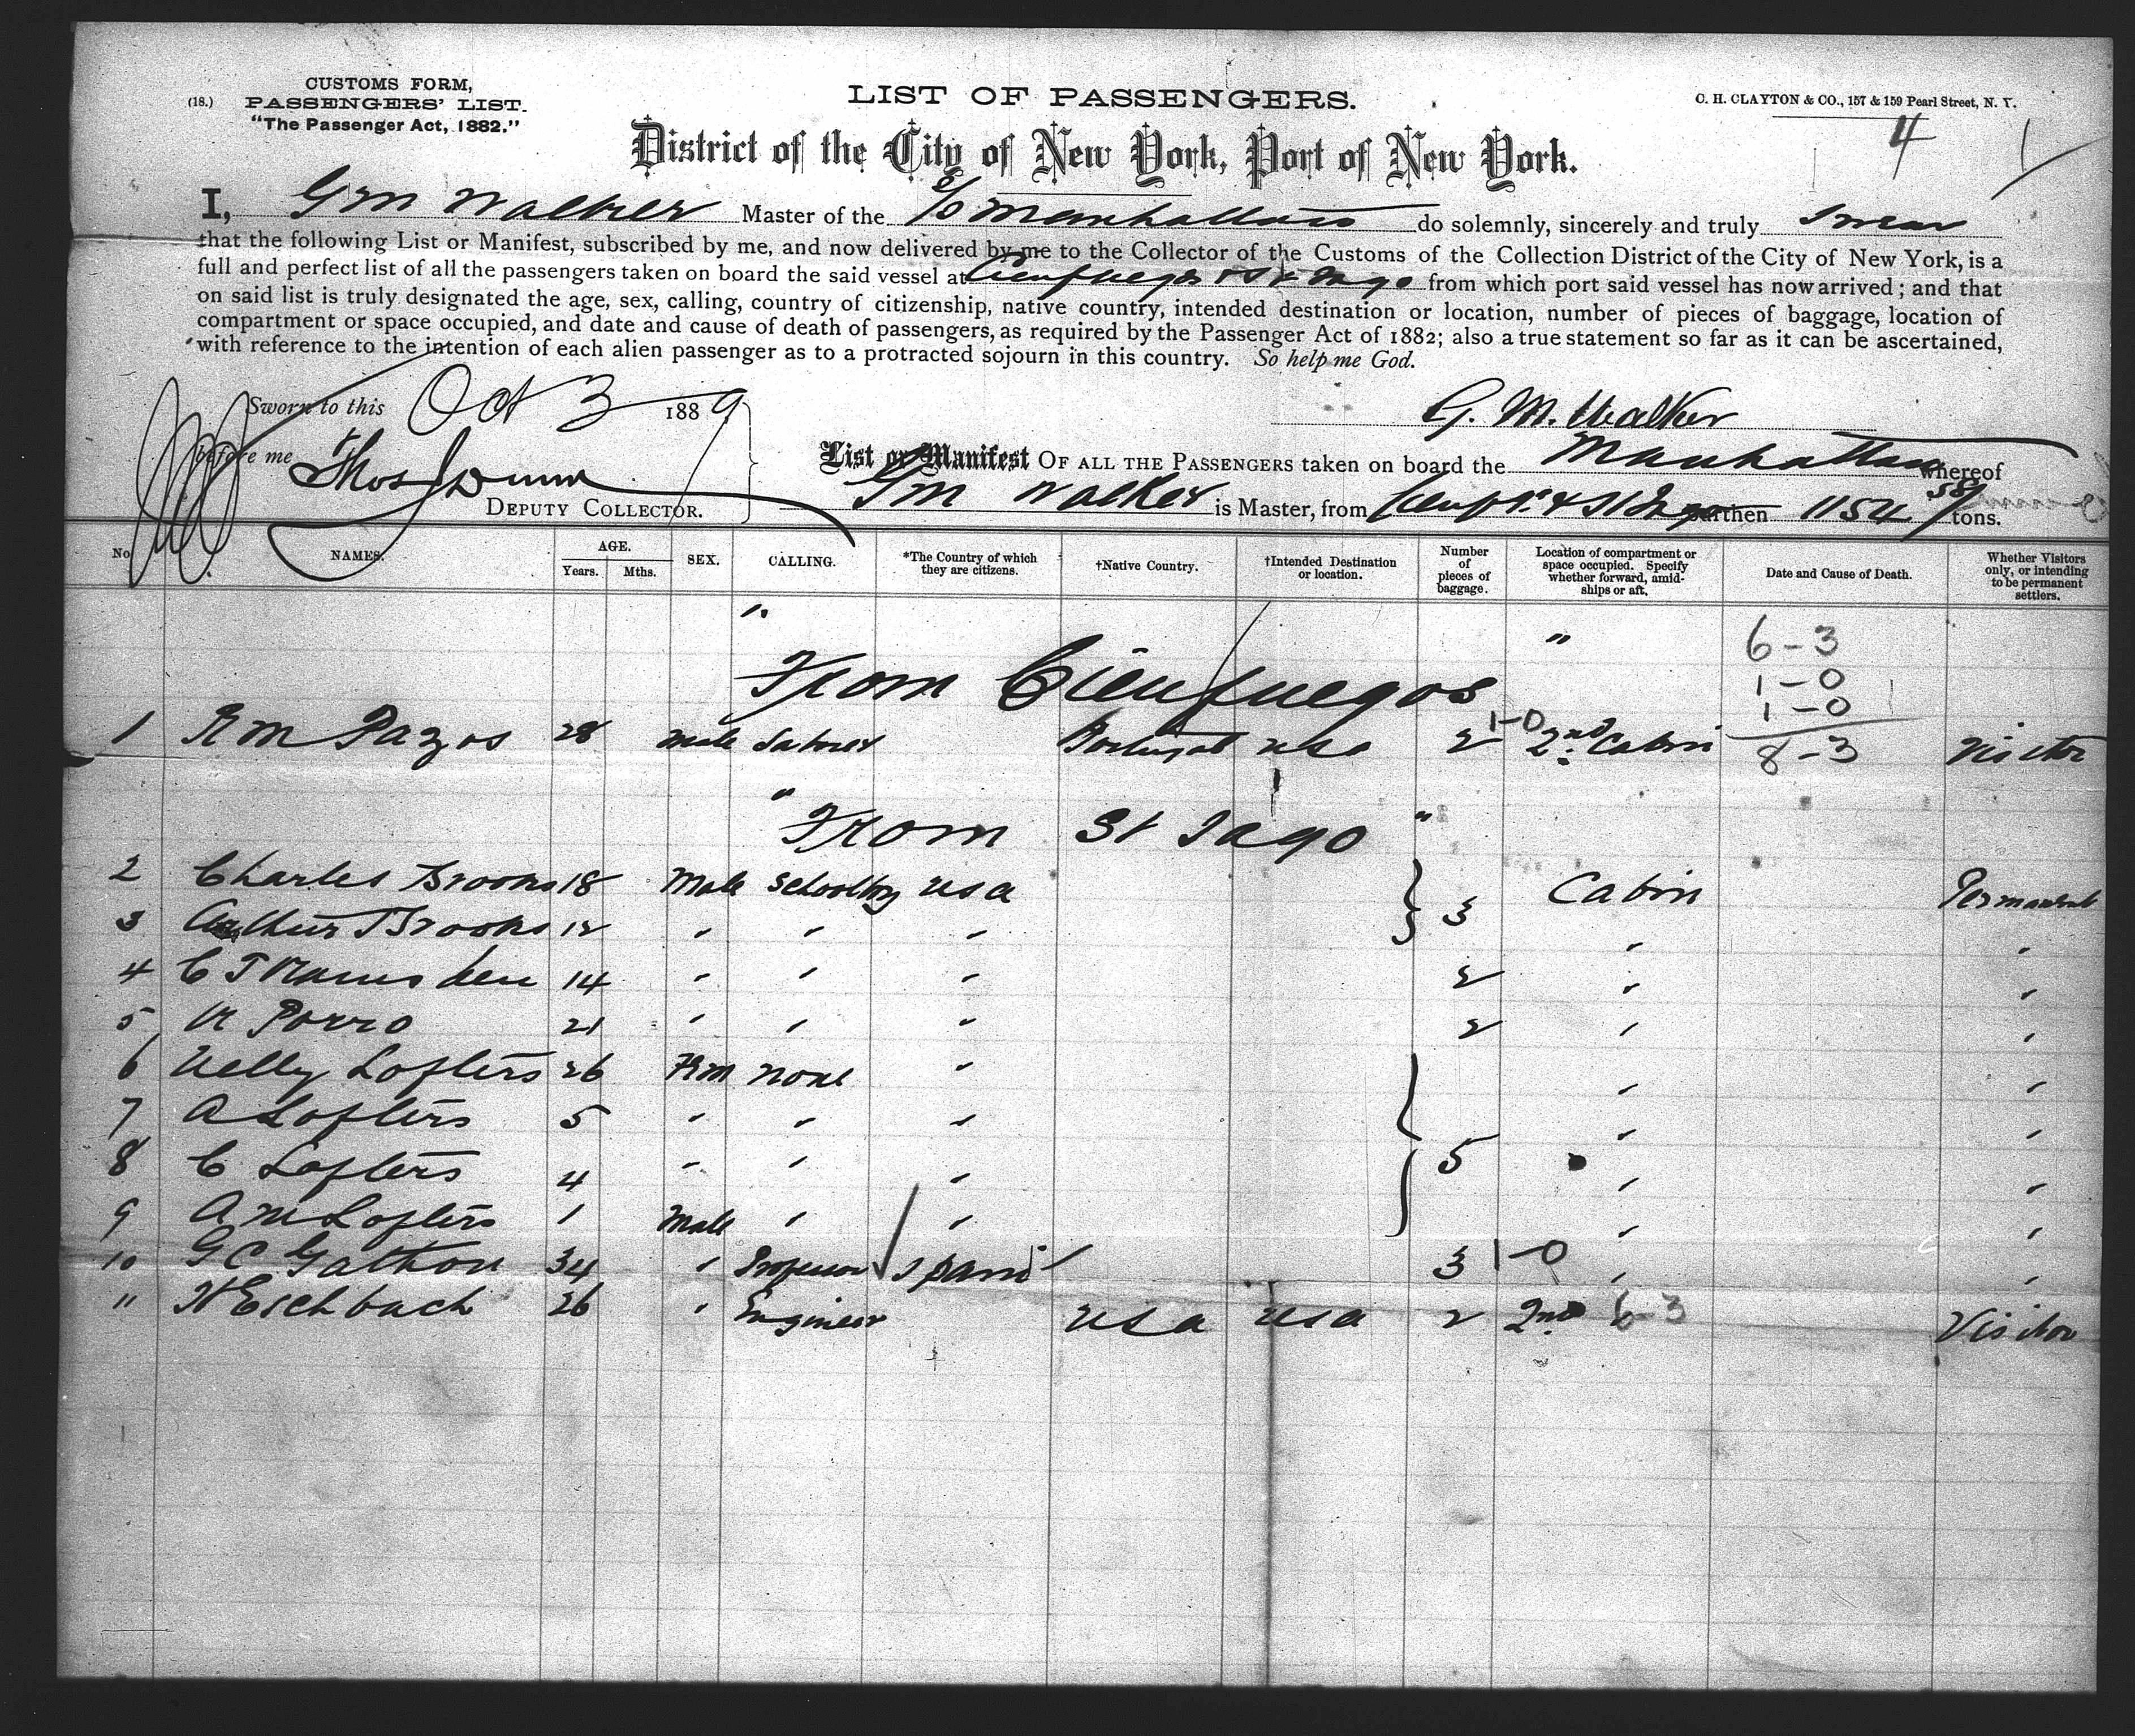 CUSTOMS FORM,
(18.) PASSENGERS' LIST.
"The Passenger Act, 1882."
LIST OF PASSENGERS.
C. H. CLAYTON & CO., 157 & 159 Pearl Street, N. Y.
4
District of the City of New York, Port of New York.
I, G M Walker Master of the S/S Manhattan do solemnly, sincerely and truly swear
that the following List or Manifest, subscribed by me, and now delivered by me to the Collector of the Customs of the Collection District of the City of New York, is a
full and perfect list of all the passengers taken on board the said vessel at Cienfuegos & St Iago from which port said vessel has now arrived; and that
on said list is truly designated the age, sex, calling, country of citizenship, native country, intended destination or location, number of pieces of baggage, location of
compartment or space occupied, and date and cause of death of passengers, as required by the Passenger Act of 1882; also a true statement so far as it can be ascertained,
with reference to the intention of each alien passenger as to a protracted sojourn in this country. So help me God.
Sworn to this Oct 3 1889
G. M. Walker
before me Thos J Dunn
DEPUTY COLLECTOR.
List or Manifest OF ALL THE PASSENGERS taken on board the Manhattan whereof
G M Walker is Master, from Cienf. & St Iago burthen 1154 58/ tons.
No. NAMES. AGE. Years. Mths. SEX. CALLING. *The Country of which they are citizens. †Native Country. †Intended Destination or location. Number of pieces of baggage. Location of compartment or space occupied. Specify whether forward, amidships or aft. Date and Cause of Death. Whether Visitors only, or intending to be permanent settlers.
" " 6-3
From Cienfuegos 1-0
1-0
1 Pazos 28 Male Laborer Portugal usa 2 1-0 2nd Cabin 8-3 Visitor
" From St Iago "
2 Charles Brooks 18 Male Schoolboy usa } 3 Cabin Permanent
3 Arthur Brooks 12 " " " " "
4 C T Ramsden 14 " " " 2 " "
5 Porro 21 " " " 2 " "
6 Nelly Lofters 26 Fem none " " "
7 A Lofters 5 " " " " "
8 C Lofters 4 " " " } 5 " "
9 A M Lofters 1 Male " " " "
10 G C 34 " Professor Spain 3 1-0 " "
11 H Eschbach 26 " Engineer usa usa 2 2nd 6-3 Visitor